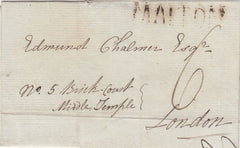 MALTON
Edmund Chalmer Esqr.
6
No. 5 Brick Court
Middle Temple
London